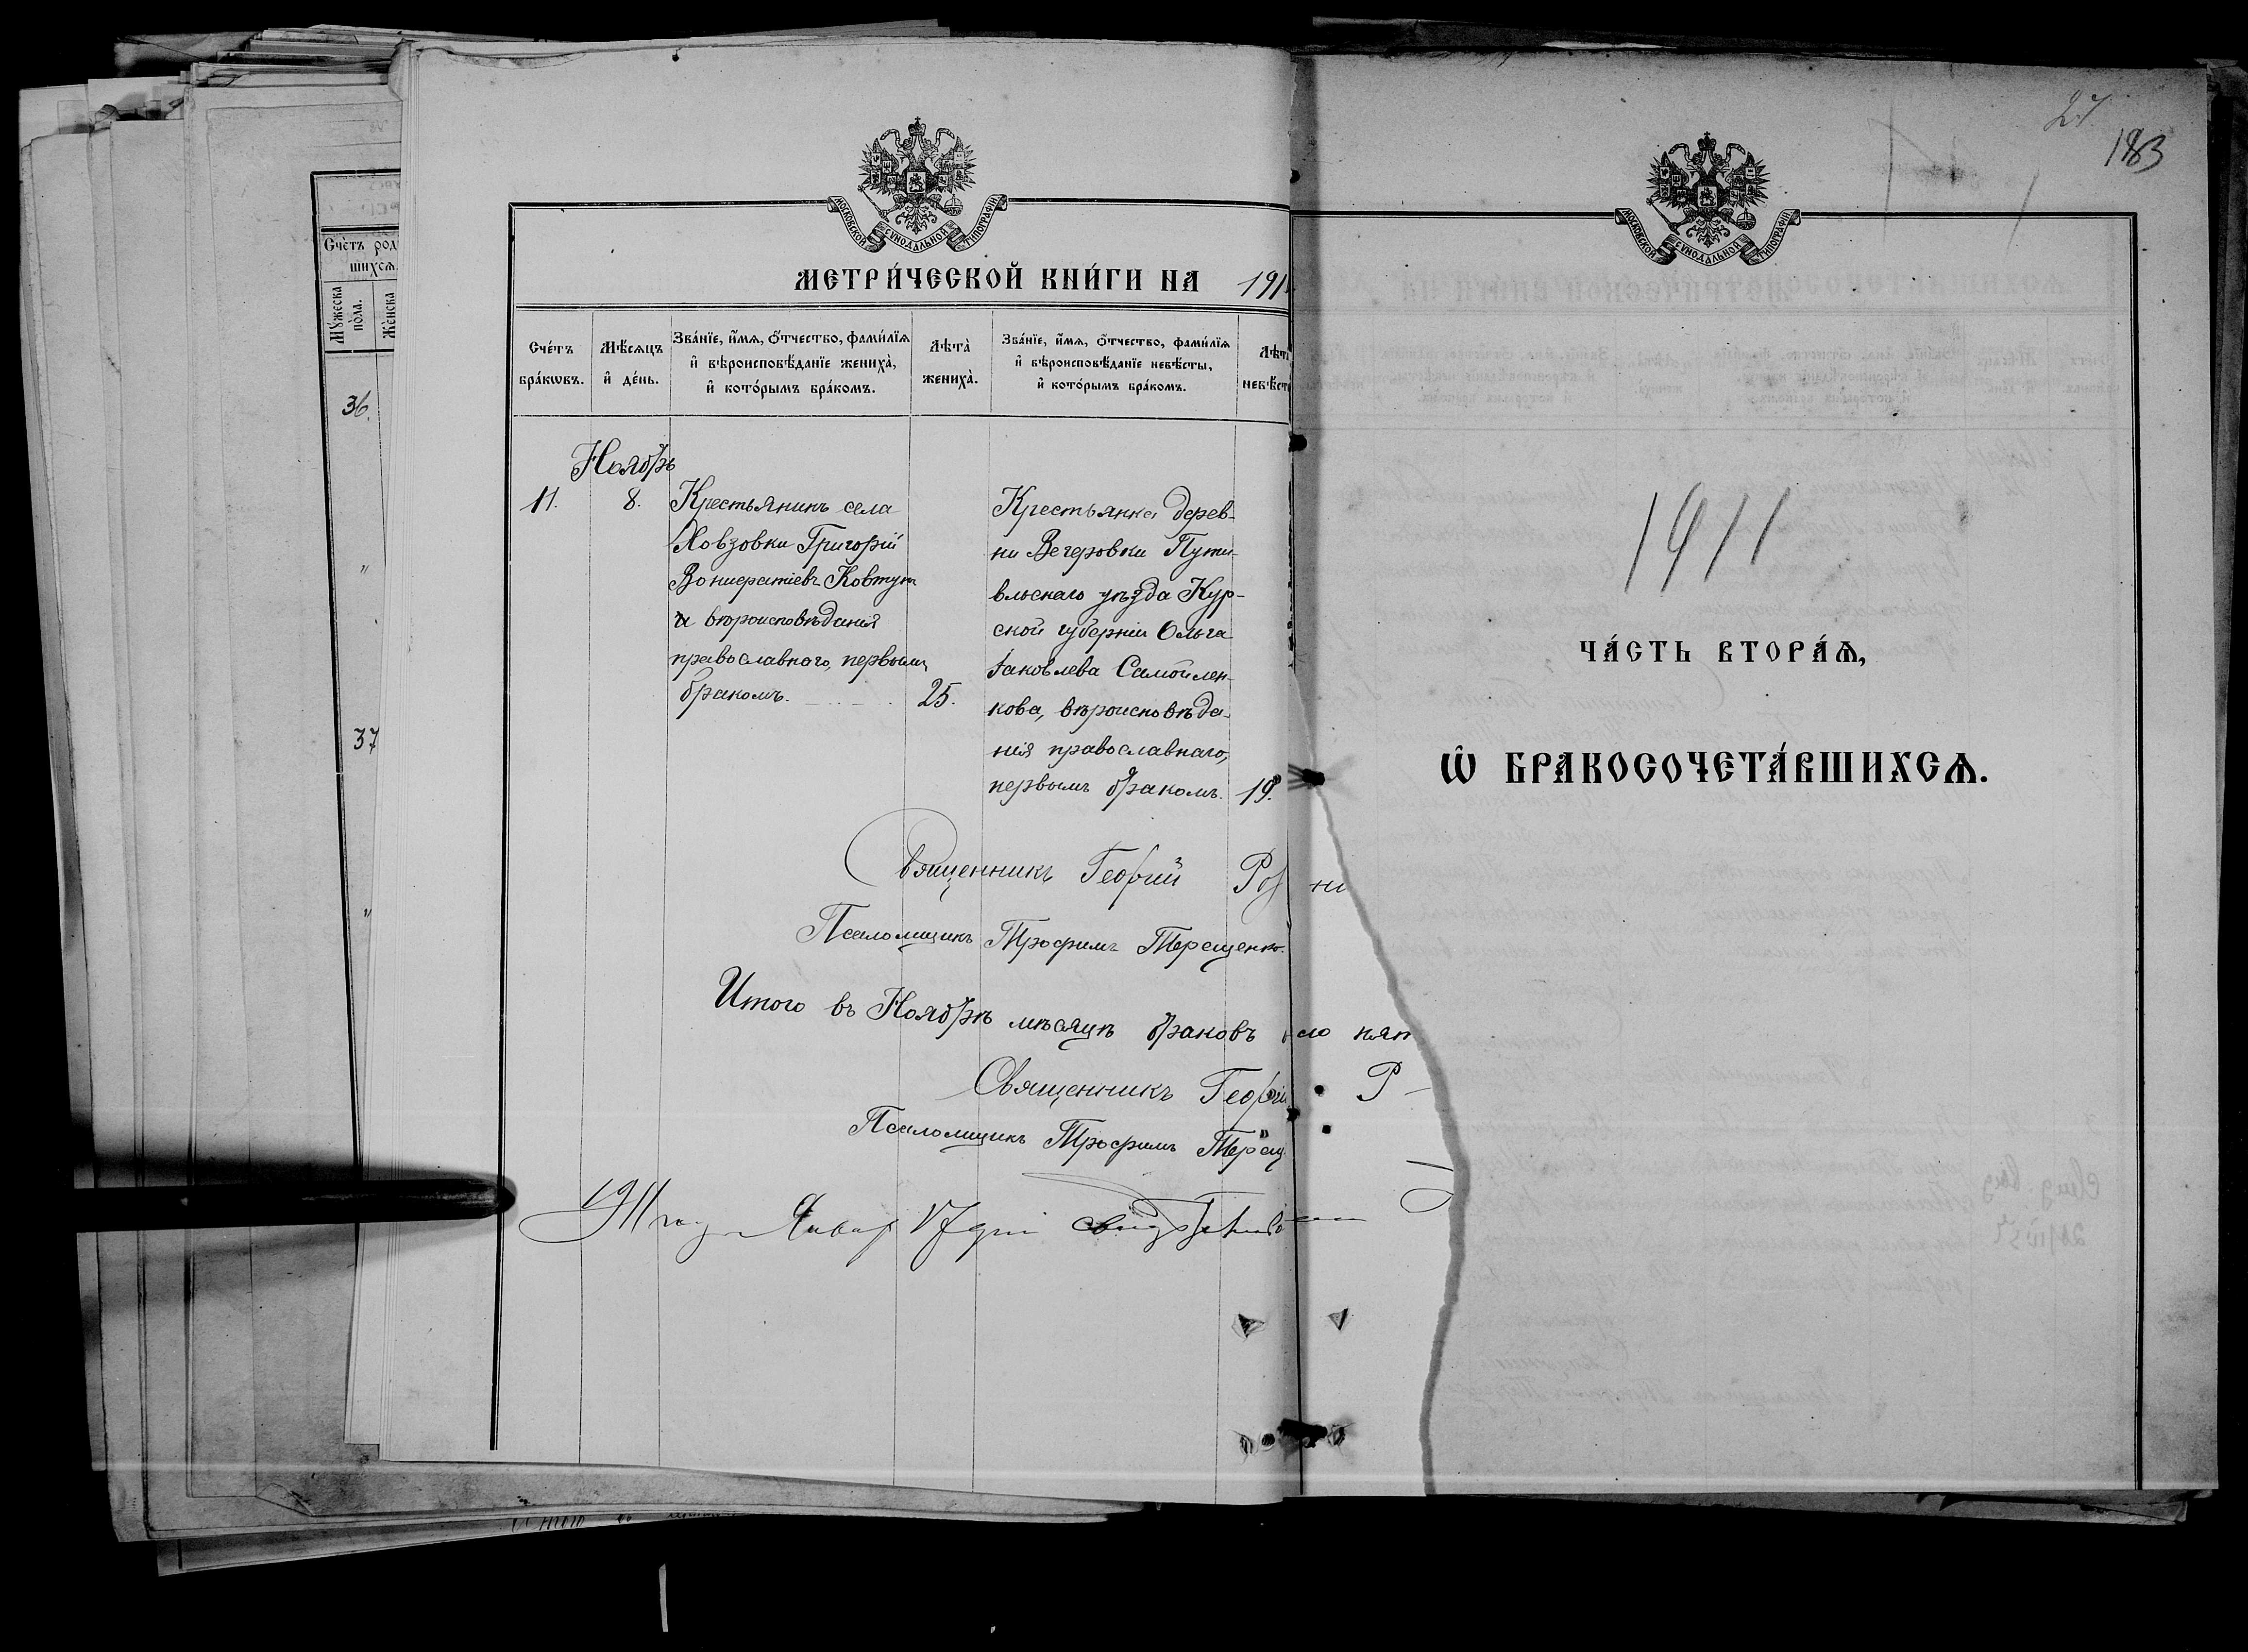 Счётъ род
шихсѧ
Мꙋжеска
пола.
Женска
36.
"
37
"
МОСКОВСКОЙ СѴНОДАЛЬНОЙ ТИПОГРАФІИ
МЕТРИ́ЧЕСКОЙ КНИ́ГИ НА 191
Сче́тъ
бра́кѡвъ.
Мѣ́сѧцъ
и҆ де́нь.
Зва́нїе, и҆́мѧ, ѻ҆́тчество, фами́лїѧ
и҆ вѣроисповѣ́данїе жениха̀,
и҆ кото́рымъ бра́комъ.
Лѣта̀
жениха̀.
Зва́нїе, и҆́мѧ, ѻ҆́тчество, фами́лїѧ
и҆ вѣроисповѣ́данїе невѣ́сты,
и҆ кото́рымъ бра́комъ.
Лѣта
невѣст
Ноябрь
11.
8.
Крестьянинъ села
Ховзовки Григорій
Вонифатіевъ Ковтун
и вѣроисповѣданія
православнаго, первымъ
бракомъ.
25.
Крестьянка дерев-
ни Вегеровки Пути-
вльскаго уѣзда Кур-
ской губерніи Ольга
Іаковлева Самойлен-
кова, вѣроисповѣда-
нія православнаго,
первымъ бракомъ.
19.
Священникъ Георгій
Псаломщикъ Трофимъ Терещенко.
Итого въ Ноябрѣ мѣсяцѣ браковъ
Священникъ Георгій
Псаломщикъ Трофимъ Терещ
1911 года Январ 17 дня
27
183
МОСКОВСКОЙ СѴНОДАЛЬНОЙ ТИПОГРАФІИ
1911
ЧА́СТЬ ВТОРА́Ѧ,
Ѡ҆ БРАКОСОЧЕТА́ВШИХСѦ.